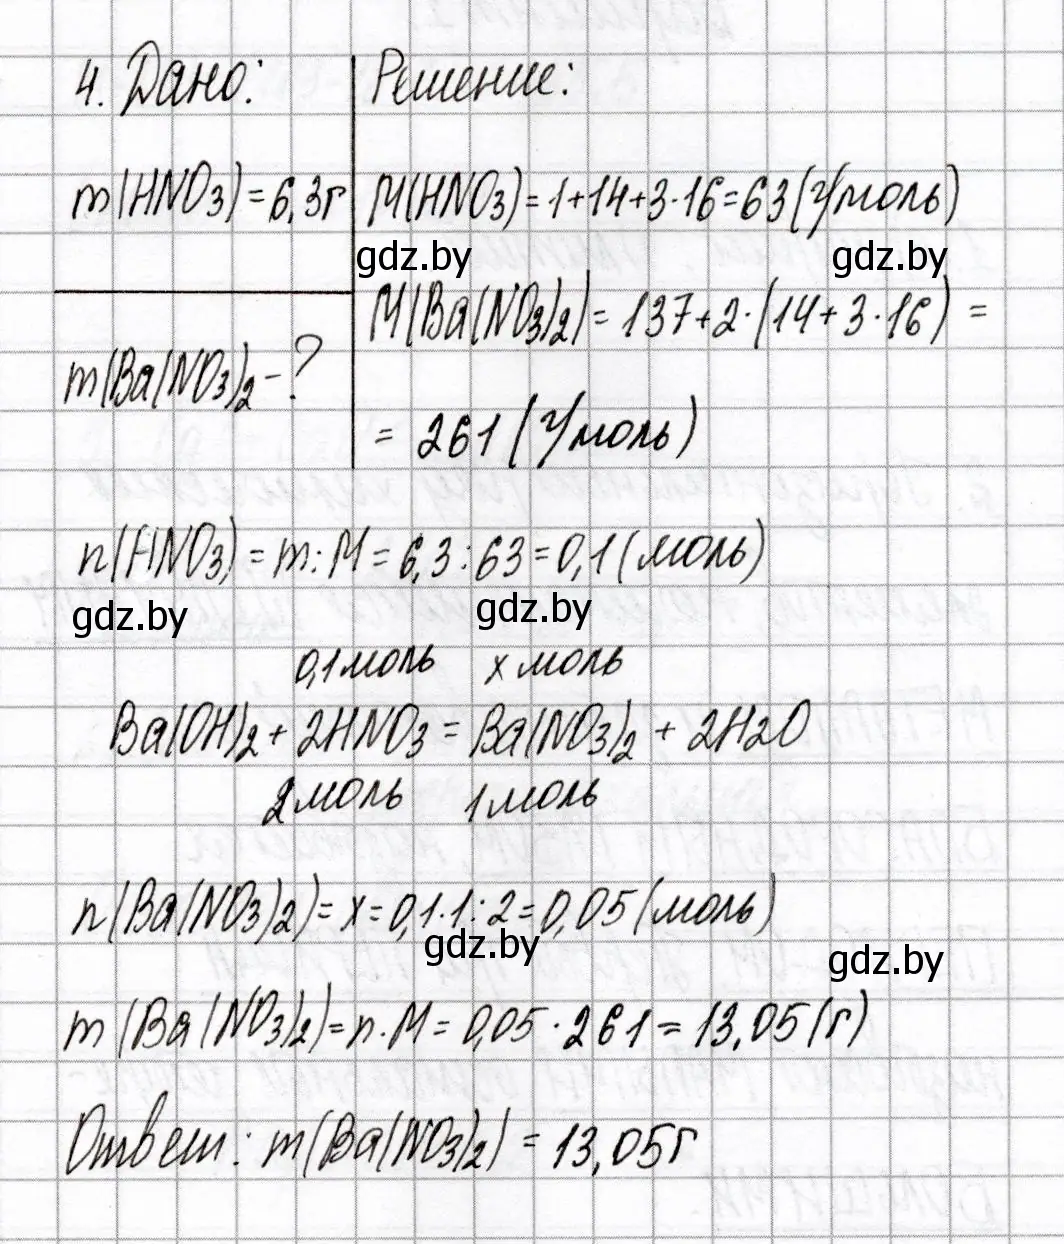 4. Дано:
Решение:
m(HNO3)=6,3г
M(HNO3)=1+14+3·16=63(г/моль)
gdz.by
gdz.by
M(Ba(NO3)2)=137+2·(14+3·16)=
m(Ba(NO3)2-?
= 261 (г/моль)
n(HNO3)=m:M=6,3:63=0,1(моль)
gdz.by
gdz.by
0,1моль х моль
Ba(OH)2+2HNO3=Ba(NO3)2+2H2O
2моль 1моль
n(Ba(NO3)2)=x=0,1·1:2=0,05(моль)
gdz.by
gdz.by
m(Ba(NO3)2)=n·M=0,05·261=13,05(г)
Ответ: m(Ba(NO3)2)=13,05г